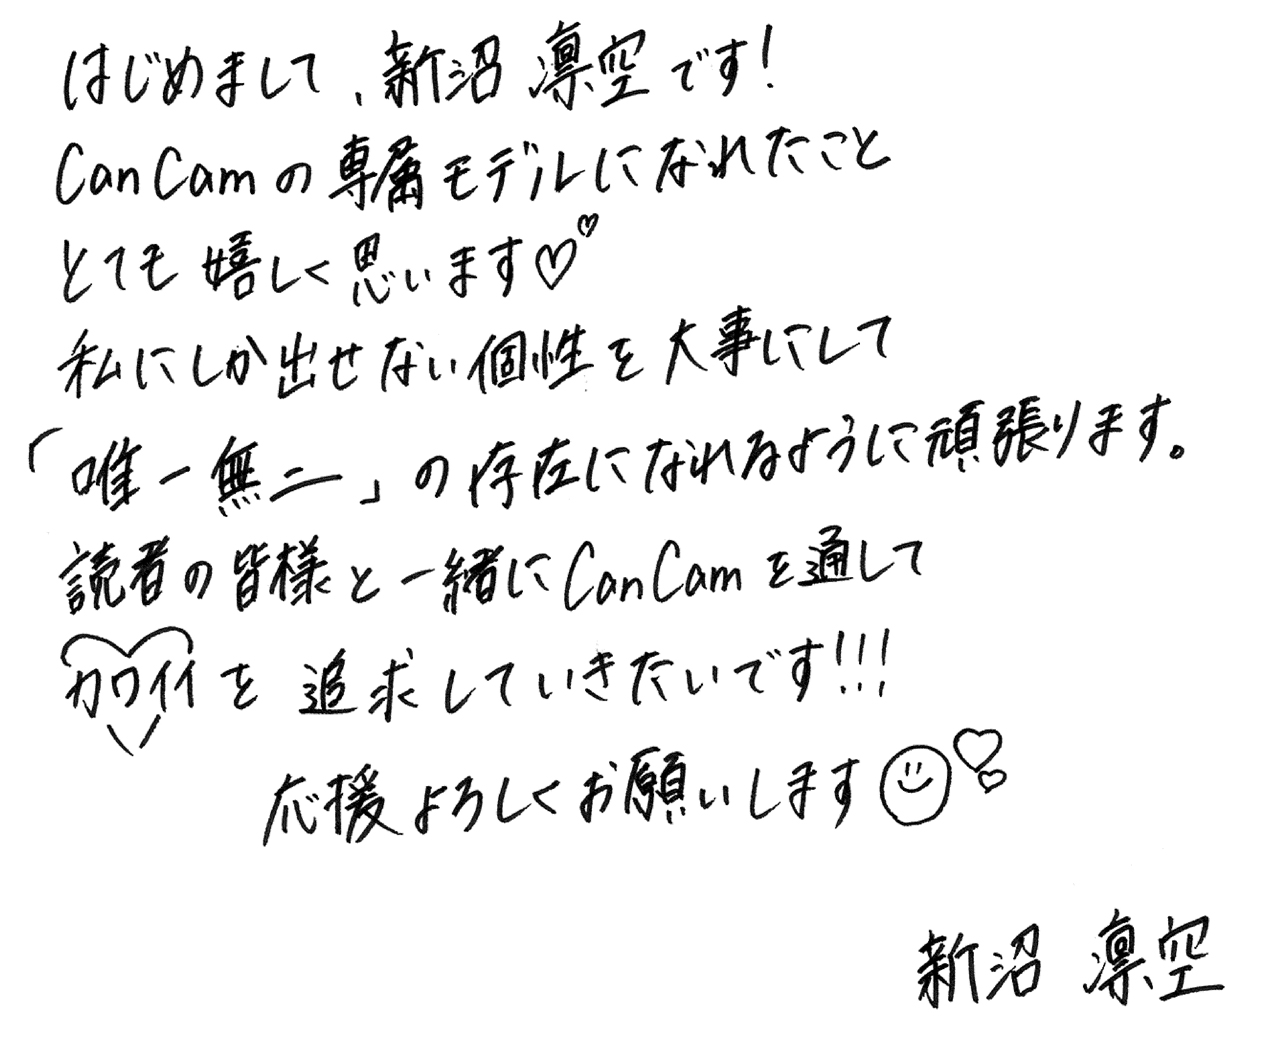 はじめまして、新沼 凛空です！
CanCamの専属モデルになれたこと
とても嬉しく思います♡♡
私にしか出せない個性を大事にして
「唯一無二」の存在になれるように頑張ります。
読者の皆様と一緒にCanCamを通して
カワイイを追求していきたいです!!!
応援よろしくお願いします
新沼 凛空